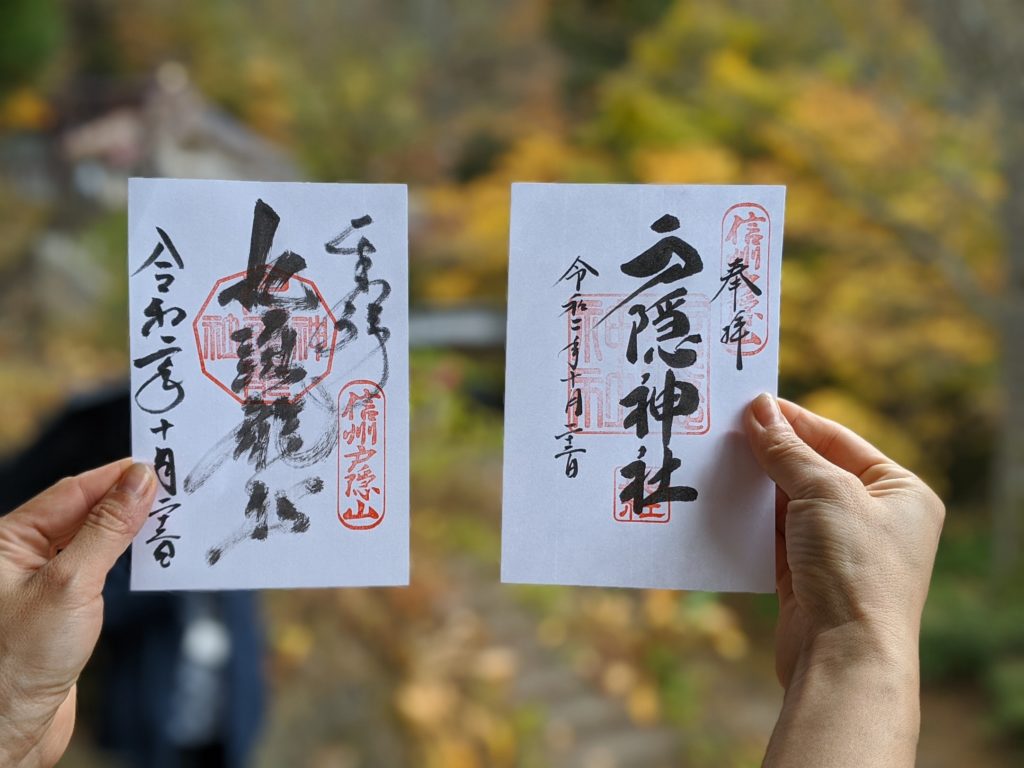 奉拝
信州戸隠山
九頭龍社
令和二年十月二十三日
信州戸隠山
奉拝
戸隠神社
令和二年十月二十三日